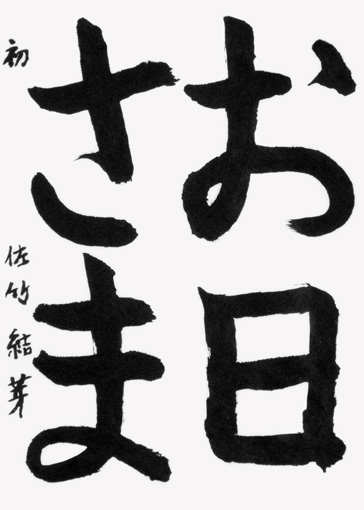 お日
さま
初 佐竹結芽